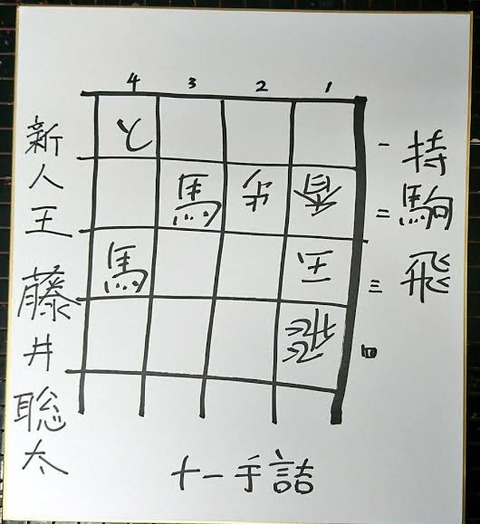 持駒飛
4 3 2 1
と
馬 歩 香
馬 玉
飛
一
二
三
四
十一手詰
新人王 藤井聡太